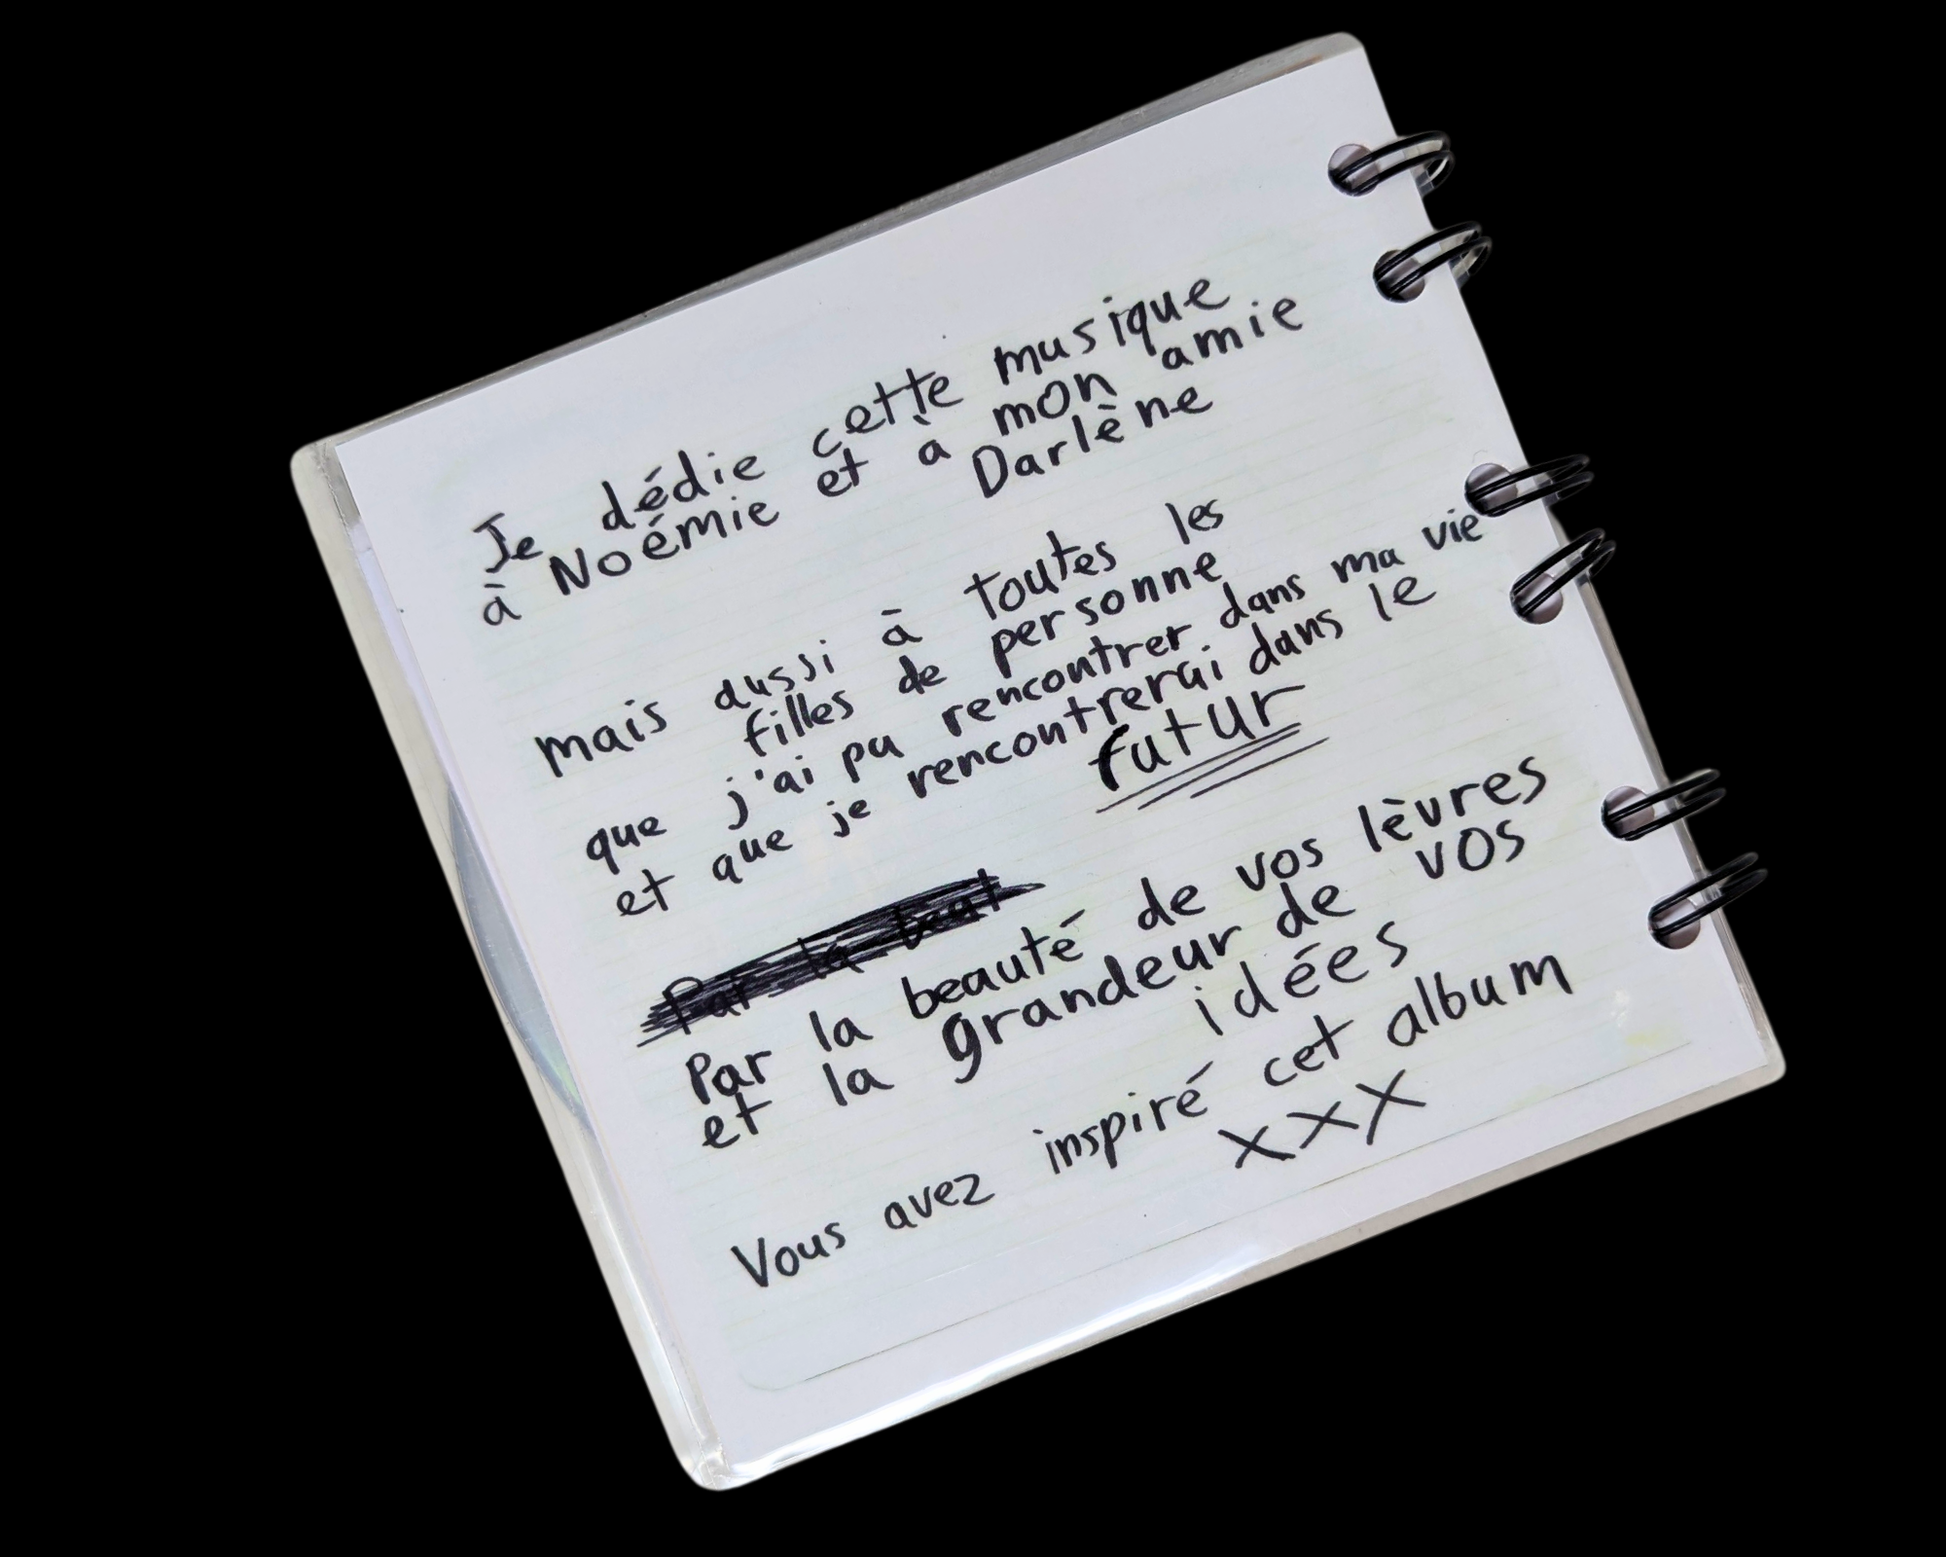 Je dédie cette musique
à Noémie et à mon amie
Darlène
mais aussi à toutes les
filles de personne
que j'ai pu rencontrer dans ma vie
et que je rencontrerai dans le
futur
Par la beat
Par la beauté de vos lèvres
et la grandeur de vos
idées
Vous avez inspiré cet album
xxx